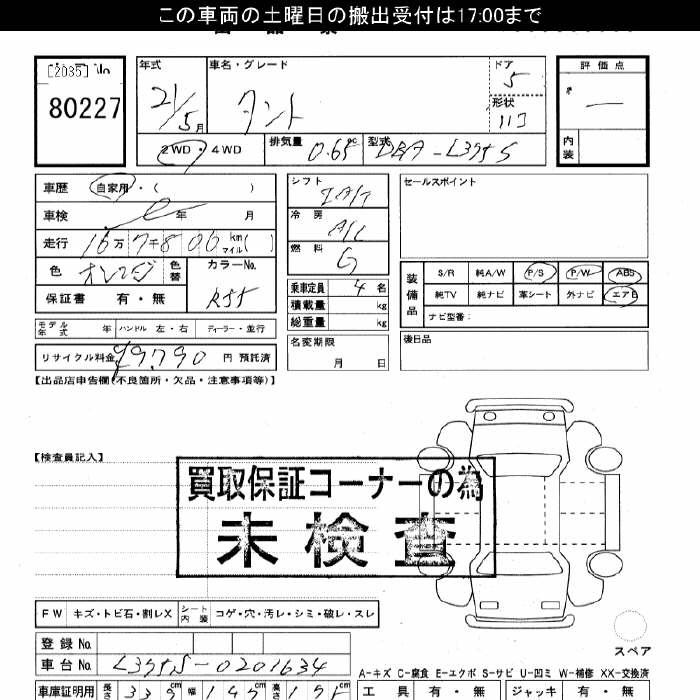 この車両の土曜日の搬出受付は17:00まで
[2035] No
80227
年式 車名・グレード ドア 評価点
21/5月 タント 5
形状
2WD・4WD 排気量 0.65cc 型式 DBA-L375S
内装
車歴 自家用・( )
車検 年 月
走行 16万7千806km マイル( )
色 オレンジ 色替 カラーNo. R55
保証書 有・無
モデル年式 年 ハンドル 左・右 ディーラー・並行
リサイクル料金 ¥9,790 円 預託済
シフト IAT
冷房 A/C
燃料 G
乗車定員 4名
積載量 kg
総重量 kg
名変期限
月 日
セールスポイント
装備品 S/R 純A/W P/S P/W ABS
純TV 純ナビ 革シート 外ナビ エアB
ナビ型番:
後日品
【出品店申告欄(不良箇所・欠品・注意事項等)】
【検査員記入】
買取保証コーナーの為
未検査
FW キズ・トビ石・割レX シート内装 コゲ・穴・汚レ・シミ・破レ・スレ
登録No.
車台No. L375S-0201634
スペア
A-キズ C-腐食 E-エクボ S-サビ U-凹ミ W-補修 XX-交換済
車庫証明用 長さ 339cm 幅 147cm 高さ 175cm
工具 有・無 ジャッキ 有・無